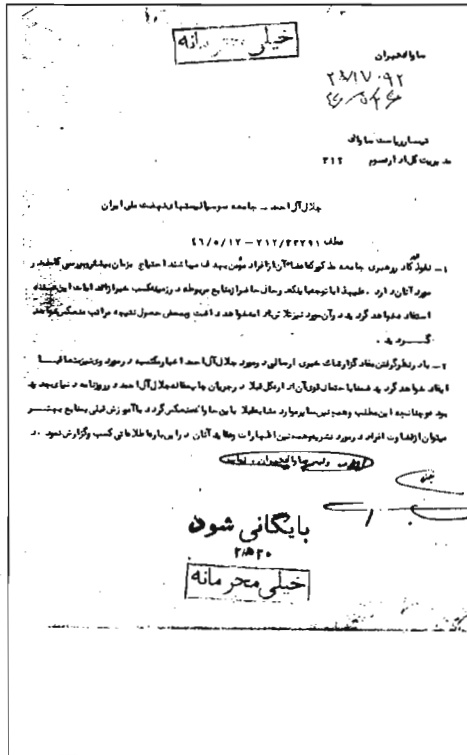 خیلی محرمانه
ساواک تهران
۲۸۱۷۰۹۲
تیمسار ریاست ساواک
مدیریت کل اداره سوم ۳۱۲
جلال آل احمد - جامعه سوسیالیستهای نهضت ملی ایران
عطف ۳۱۲/۳۳۲۹۱ - ۴۶/۵/۱۲
۱- نفوذ در کادر رهبری جامعه مذکور که اعضاء آن از افراد مؤمن بهدف میباشند احتیاج بزمان بیشتر و بررسی کامل در
مورد آنان دارد . علیهذا با توجه باینکه در حال حاضر از منابع مربوطه در زمینه کسب خبر از فعالیت این
استفاده خواهد گردید در آن مورد نیز تلاش ادامه خواهد داشت و بمحض حصول نتیجه مراتب منعکس خواهد
گردید .
۲- با در نظر گرفتن مفاد گزارشات خبری ارسالی در مورد جلال آل احمد اخبار مکتسبه در مورد وی نیز متعاقباً
ایفاد خواهد گردید ضمناً احتمال قوی آن اداره کل قبلا در جریان چاپ مقاله جلال آل احمد در روزنامه دنیای جدید
بوده چنانچه این مطلب و همچنین سایر موارد مشابه قبلا باین ساواک منعکس گردد با آموزش قبلی بمنابع بهتر
میتوان از تفاوت افراد در مورد نشریه و همچنین اظهارات و عقاید آنان در این باره اطلاعاتی کسب و گزارش نمود . ر
رئیس ساواک تهران .
بایگانی شود
۲/۵/۲۰
خیلی محرمانه